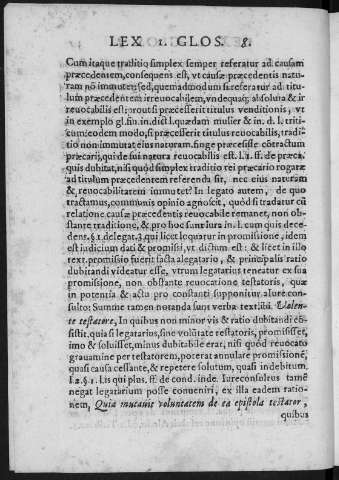 LEX 1. GLOS. 8.
Cum itaque traditio simplex semper referatur ad causam
præcedentem, consequens est, vt causæ præcedentis natu-
ram nõ immutet: sed, quemadmodum si referatur ad titu-
lum præcedentem irreuocabilem, vndequaq; absoluta & ir
reuocabilis est: prout si præcesserit titulus venditionis, vt
in exemplo gl. fin. in dict. l. quædam mulier & in. d. l. triti-
cum: eodem modo, si præcesserit titulus reuocabilis, tradi-
tio non immutat eius naturam. finge præcesisse cõtractum
precarij, qui de sui natura reuocabilis est. l. 1. ff. de præca.
quis dubitat, nisi quòd simplex traditio rei præcario rogatæ
ad titulum præcedentem referenda sit, nec eius naturam
& reuocabilitatem immutet? In legato autem, de quo
tractamus, communis opinio agnoscit, quòd si tradatur cũ
relatione causæ præcedentis reuocabile remanet, non ob-
stante traditione, & pro hoc sunt iura in. l. cum quis dece-
dens. §. 1. delegat. 3. qui licet loquatur in promissione, idem
est iudicium dati & promissi, vt dictum est: & licet in illo
text. promissio fuerit facta alegatario, & principalis ratio
dubitandi videatur esse, vtrum legatarius teneatur ex sua
promissione, non obstante reuocatione testatoris, quæ
in potentia & actu pro constanti supponitur a Iure consulto:
Summe tamen notanda sunt verba text. ibi. Volen-
te testatore, In quibus non minor vis & ratio dubitandi cõ-
sistit, quia si legatarius, sine volũtate testatoris, promisisset,
imò & soluisset, minus dubitabile erat, nisi quòd reuocato
grauamine per testatorem, poterat annulare promissionẽ,
quasi causa cessante, & repetere solutum, quasi indebitum.
l. 2. §. 1. l. is qui plus. ff. de cond. inde. Iureconsultus tamẽ
negat legatarium posse conueniri, ex illa eadem ratio-
nem, Quia mutauit voluntatem de ea epistola testator,
quibus